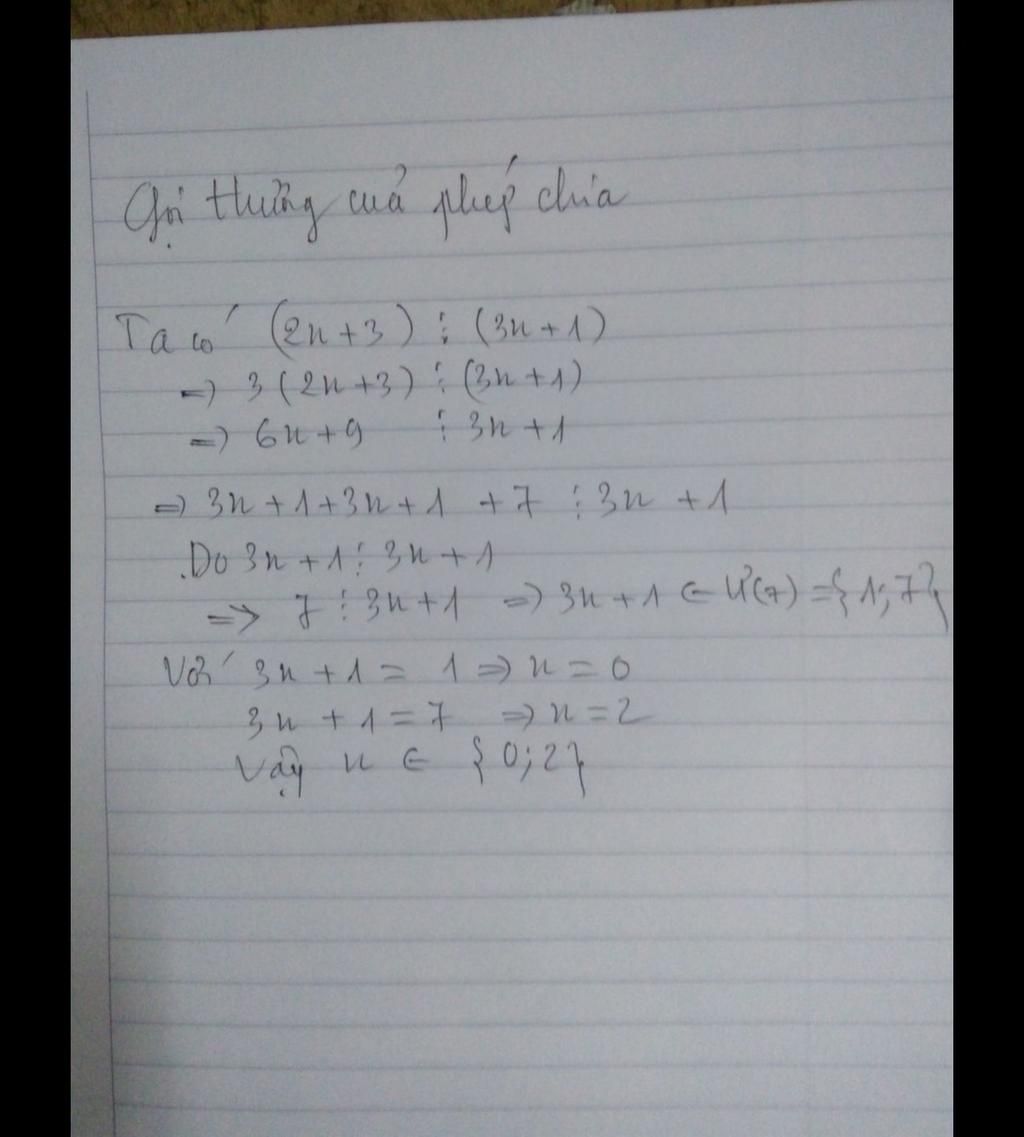 Gọi thương của phép chia
Ta có (2n+3) ⋮ (3n+1)
=> 3(2n+3) ⋮ (3n+1)
=> 6n+9 ⋮ 3n+1
=> 3n+1+3n+1 +7 ⋮ 3n +1
Do 3n+1 ⋮ 3n+1
=> 7 ⋮ 3n+1 => 3n+1 ∈ Ư(7) = {1; 7}
Với 3n+1 = 1 => n = 0
3n + 1 = 7 => n = 2
Vậy n ∈ {0; 2}